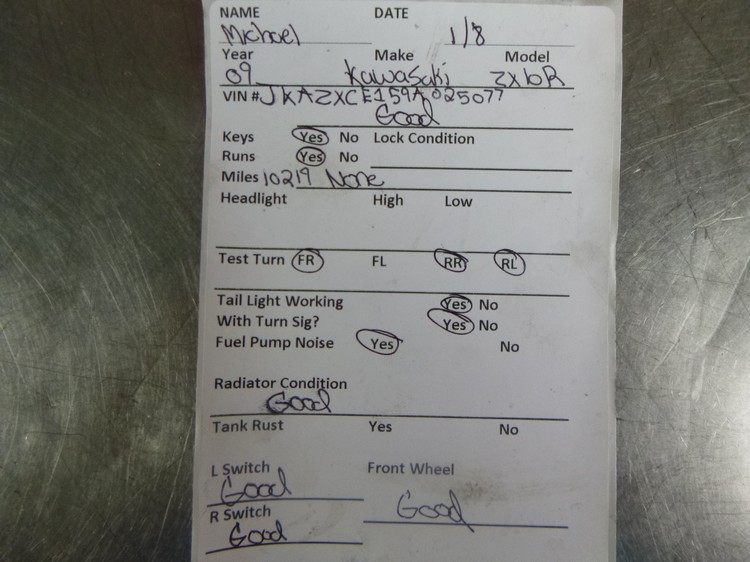 NAME DATE
Michael 1/8
Year Make Model
09 Kawasaki ZX6R
VIN # JKAZXCE159A025077
Good
Keys Yes No Lock Condition
Runs Yes No
Miles 10219 None
Headlight High Low
Test Turn FR FL RR RL
Tail Light Working Yes No
With Turn Sig? Yes No
Fuel Pump Noise Yes No
Radiator Condition
Good
Tank Rust Yes No
L Switch Front Wheel
Good Good
R Switch
Good